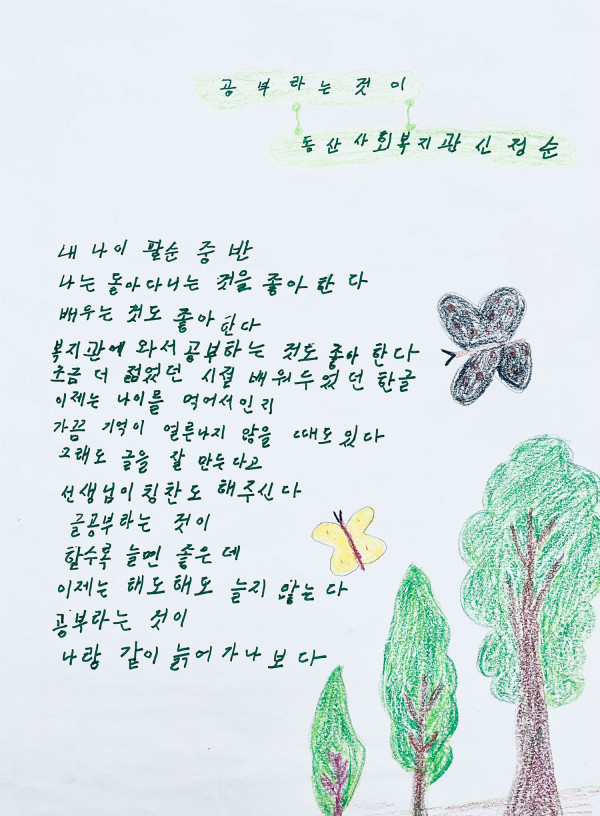 공부하는 것이
동산사회복지관 신정순
내 나이 팔순 중반
나는 돌아다니는 것을 좋아한다
배우는 것도 좋아한다
복지관에 와서 공부하는 것도 좋아한다
조금 더 젊었던 시절 배워두었던 한글
이제는 나이를 먹어서인지
가끔 기억이 얼른나지 않을 때도 있다
그래도 글을 잘 만든다고
선생님이 칭찬도 해주신다
글공부하는 것이
할수록 늘면 좋은데
이제는 해도해도 늘지 않는다
공부하는 것이
나랑 같이 늙어가나보다